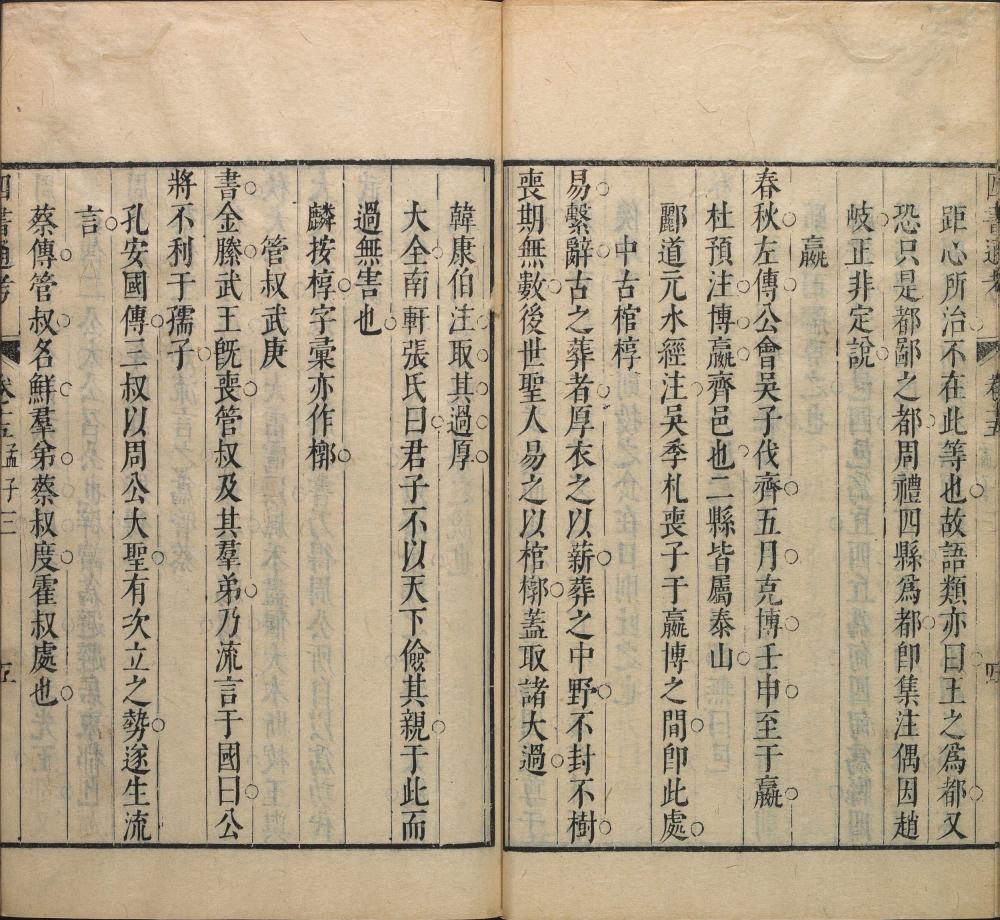 距心所治不在此等也故語類亦曰王之爲都又
恐只是都鄙之都周禮四縣爲都卽集注偶因趙
岐正非定說
嬴
春秋左傳公會吳子伐齊五月克博壬申至于嬴
杜預注博嬴齊邑也二縣皆屬泰山
酈道元水經注吳季札喪子于嬴博之間卽此處
中古棺椁
易繫辭古之葬者厚衣之以薪葬之中野不封不樹
喪期無數後世聖人易之以棺槨蓋取諸大過
韓康伯注取其過厚
大全南軒張氏曰君子不以天下儉其親于此而
過無害也
麟按椁字彙亦作槨
管叔武庚
書金縢武王旣喪管叔及其羣弟乃流言于國曰公
將不利于孺子
孔安國傳三叔以周公大聖有次立之勢遂生流
言
蔡傳管叔名鮮羣弟蔡叔度霍叔處也
四書通考 卷十五孟子三 五